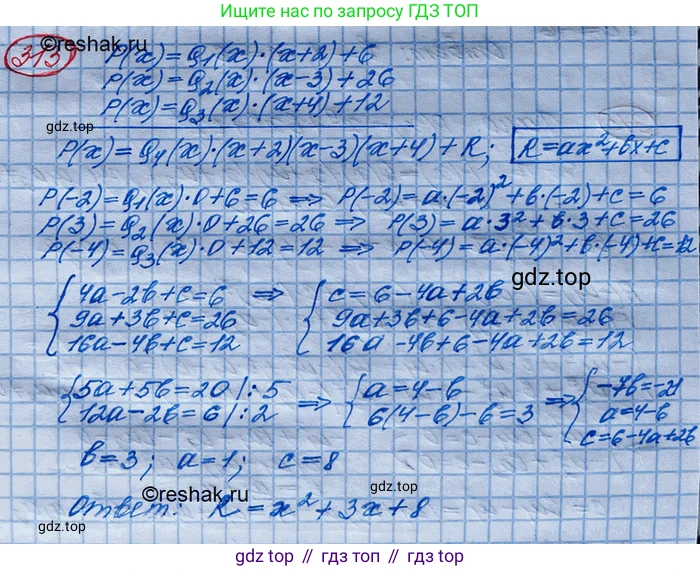 Ищите нас по запросу ГДЗ ТОП
313
©reshak.ru
P(x)=Q₁(x)·(x+2)+6
P(x)=Q₂(x)·(x-3)+26
P(x)=Q₃(x)·(x+4)+12
gdz.top
P(x)=Q₄(x)·(x+2)(x-3)(x+4)+R; R=ax²+bx+c
P(-2)=Q₁(x)·0+6=6 ⇒ P(-2)=a·(-2)²+b·(-2)+c=6
P(3)=Q₂(x)·0+26=26 ⇒ P(3)=a·3²+b·3+c=26
P(-4)=Q₃(x)·0+12=12 ⇒ P(-4)=a·(-4)²+b·(-4)+c=12
gdz.top
{4a-2b+c=6 ⇒ {c=6-4a+2b
9a+3b+c=26 9a+3b+6-4a+2b=26
16a-4b+c=12 16a-4b+6-4a+2b=12
{5a+5b=20|:5 ⇒ {a=4-b ⇒ {-7b=-21
12a-2b=6|:2 6(4-b)-b=3 a=4-b
c=6-4a+2b
b=3; a=1; c=8
©reshak.ru
gdz.top
Ответ: R=x²+3x+8
gdz.top // гдз топ // gdz.top